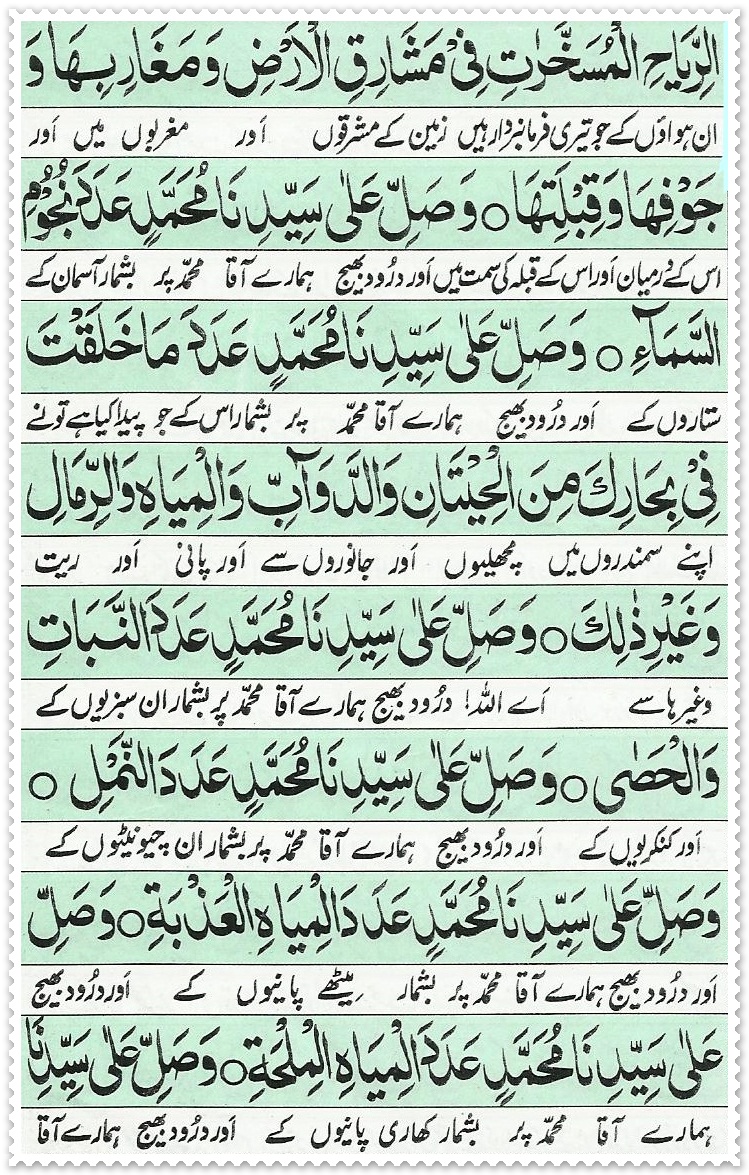 الرِّيَاحِ الْمُسَخَّرَاتِ فِىْ مَشَارِقِ الْاَرْضِ وَمَغَارِبِهَا وَ
ان ہواؤں کے جو تیری فرمانبردار ہیں زمین کے مشرقوں اور مغربوں میں اور
جَوْفِهَا وَقِبْلَتِهَا ○ وَصَلِّ عَلٰى سَيِّدِنَا مُحَمَّدٍ عَدَدَ نُجُوْمِ
اس کے درمیان اور اس کے قبلہ کی سمت میں اور درُود بھیج ہمارے آقا محمدؐ پر بشمار آسمان کے
السَّمَآءِ ○ وَصَلِّ عَلٰى سَيِّدِنَا مُحَمَّدٍ عَدَدَ مَا خَلَقْتَ
ستاروں کے اور درُود بھیج ہمارے آقا محمدؐ پر بشمار اس کے جو پیدا کیا ہے تونے
فِىْ بِحَارِكَ مِنَ الْحِيْتَانِ وَالدَّوَآبِّ وَالْمِيَاهِ وَالرِّمَالِ
اپنے سمندروں میں مچھلیوں اور جانوروں سے اور پانی اور ریت
وَغَيْرِ ذٰلِكَ ○ وَصَلِّ عَلٰى سَيِّدِنَا مُحَمَّدٍ عَدَدَ النَّبَاتِ
وغیرہا سے اَے اللہ! درُود بھیج ہمارے آقا محمدؐ پر بشمار ان سبزیوں کے
وَالْحَصٰى ○ وَصَلِّ عَلٰى سَيِّدِنَا مُحَمَّدٍ عَدَدَ النَّمْلِ ○
اور کنکریوں کے اور درُود بھیج ہمارے آقا محمدؐ پر بشمار ان چیونٹیوں کے
وَصَلِّ عَلٰى سَيِّدِنَا مُحَمَّدٍ عَدَدَ الْمِيَاهِ الْعَذْبَةِ ○ وَصَلِّ
اور درُود بھیج ہمارے آقا محمدؐ پر بشمار میٹھے پانیوں کے اور درُود بھیج
عَلٰى سَيِّدِنَا مُحَمَّدٍ عَدَدَ الْمِيَاهِ الْمِلْحَةِ ○ وَصَلِّ عَلٰى سَيِّدِنَا
ہمارے آقا محمدؐ پر بشمار کھاری پانیوں کے اور درُود بھیج ہمارے آقا